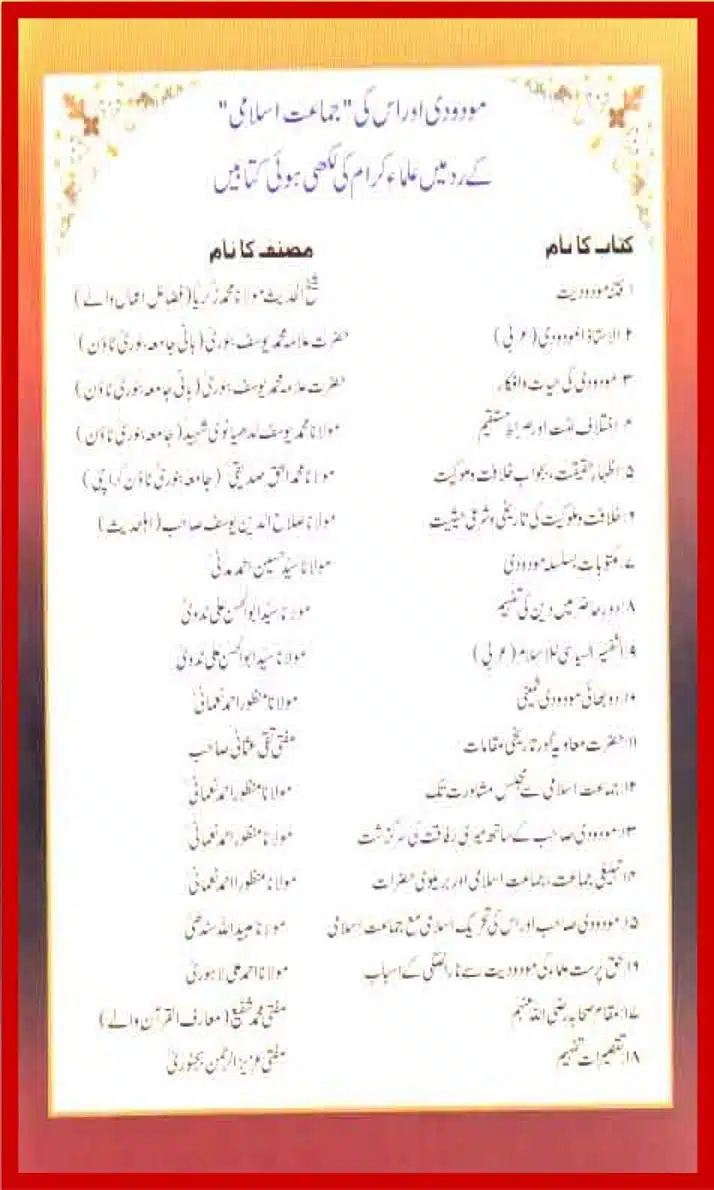 مودودی اور اس کی "جماعت اسلامی"
کے رد میں علماء کرام کی لکھی ہوئی کتابیں
کتاب کا نام مصنف کا نام
۱۔ فتنۂ مودودیت شیخ الحدیث مولانا محمد زکریا (فضائل اعمال والے)
۲۔ الاستاذ المودودی (عربی) حضرت علامہ محمد یوسف بنوریؒ (بانی جامعہ بنوری ٹاؤن)
۳۔ مودودی کی حیات و افکار حضرت علامہ محمد یوسف بنوریؒ (بانی جامعہ بنوری ٹاؤن)
۴۔ اختلاف امت اور صراط مستقیم مولانا محمد یوسف لدھیانوی شہیدؒ (جامعہ بنوری ٹاؤن)
۵۔ اظہار حقیقت بجواب خلافت و ملوکیت مولانا محمد اسحٰق صدیقیؒ (جامعہ بنوری ٹاؤن کراچی)
۶۔ خلافت و ملوکیت کی تاریخی و شرعی حیثیت مولانا صلاح الدین یوسف صاحب (اہلحدیث)
۷۔ مکتوبات بسلسلہ مودودی مولانا سید حسین احمد مدنیؒ
۸۔ دور حاضر میں دین کی تفہیم مولانا سید ابوالحسن علی ندویؒ
۹۔ التفسیر السیاسی للاسلام (عربی) مولانا سید ابوالحسن علی ندویؒ
۱۰۔ دو بھائی مودودی خمینی مولانا منظور احمد نعمانیؒ
۱۱۔ حضرت معاویہؓ اور تاریخی مقامات مفتی تقی عثمانی صاحب
۱۲۔ جماعت اسلامی سے مجلس مشاورت تک مولانا منظور احمد نعمانیؒ
۱۳۔ مودودی صاحب کے ساتھ میری رفاقت کی سرگزشت مولانا منظور احمد نعمانیؒ
۱۴۔ تبلیغی جماعت، جماعت اسلامی اور بریلوی حضرات مولانا منظور احمد نعمانیؒ
۱۵۔ مودودی صاحب اور اس کی تحریک اسلامی مع جماعت اسلامی مولانا عبید اللہ سندھیؒ
۱۶۔ حق پرست علماء کی مودودیت سے ناراضگی کے اسباب مولانا احمد علی لاہوریؒ
۱۷۔ مقام صحابہ رضی اللہ عنہم مفتی محمد شفیع (معارف القرآن والے)
۱۸۔ تقصیرات تفہیم مفتی عزیز الرحمن بجنوریؒ